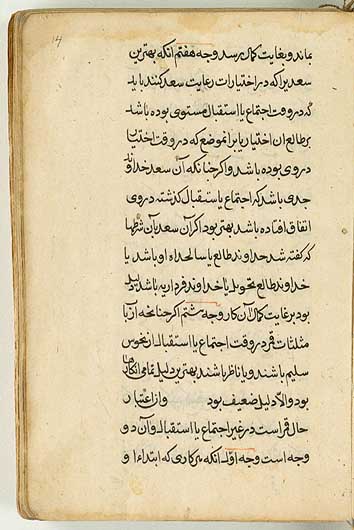 ۱۴
بماند و بغایت کمال رسد وجه هفتم انکه بهترین
سعدیرا که در اختیارات رعایت سعد کنند باید
که در وقت اجتماع یا استقبال مستوی بوده باشد
بر طالع ان اختیار یا بر انموضع که در وقت اختیار
در وی بوده باشد و اکر چنانکه آن سعد خداوند
جدی باشد که اجتماع یا استقبال کذشته در وی
اتفاق افتاده باشد بهتر بود اکر آن سعد بآن شرطها
که کفته شد خداوند طالع یا سالخداه او باشد یا
خداوند طالع تحویل یا خداوند فرداریه باشد دلیل
بود بر غایت کمال آن کار وجه هشتم اکر چنانچه ارباب
مثلثات قمر در وقت اجتماع یا استقبال از نحوس
سلیم باشند و یا ناظر باشند بهتر بود دلیل تمامی انکارها
بود والا دلیل ضعیف بود و از اعتبار
حال قمر است در غیر اجتماع یا استقبال و آن دو
وجه است وجه اول انکه هر کاری که ابتداء او